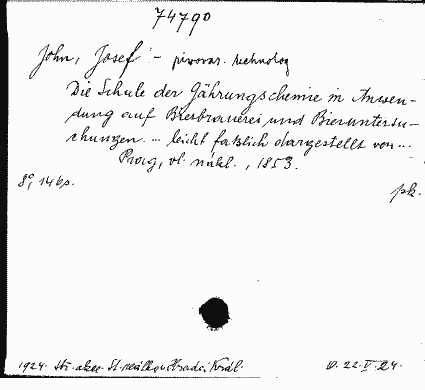 74790
John, Josef - pivovar. technolog
Die Schule der Gährungschemie in Anwen-
dung auf Bierbrauerei und Bieruntersu-
chungen ... leicht faßlich dargestellt von ...
Prag, vl. nákl., 1853.
8°, 14 b s.
pk.
1924. St. Hradci Král.
D. 22.V.24.